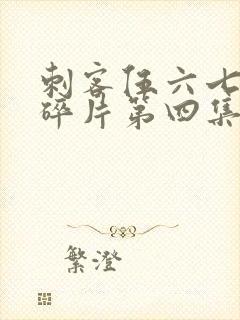 刺客伍六七
碎片第四集
繁澄